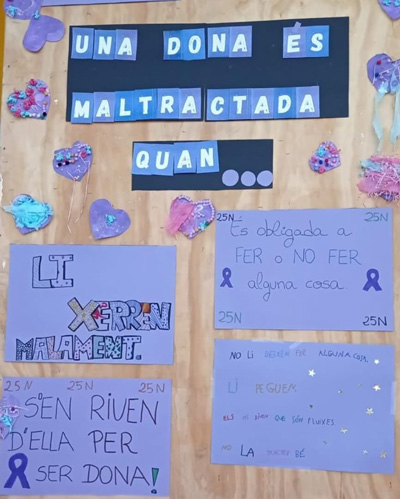 UNA DONA ÉS
MALTRACTADA
QUAN...
LI
XERREN
MALAMENT.
25N 25N
Es obligada a
FER o NO FER
alguna cosa
25N 25N
25N 25N 25N
S'EN RIVEN
D'ELLA PER
SER DONA!
NO LI DEIXEN FER ALGUNA COSA.
LI PEGUEM
ELS DIUEN QUE SÓN FLUIXES
NO LA